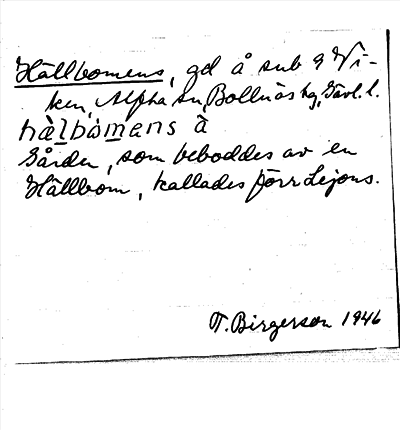 Hällbomens, gd å sub 9 Vi-
ken, Alfta sn, Bollnäs tg, Gävl. l.
hàlbòmens å
Gården, som beboddes av en
Hällbom, kallades förr Lejons.
T. Birgerson 1946